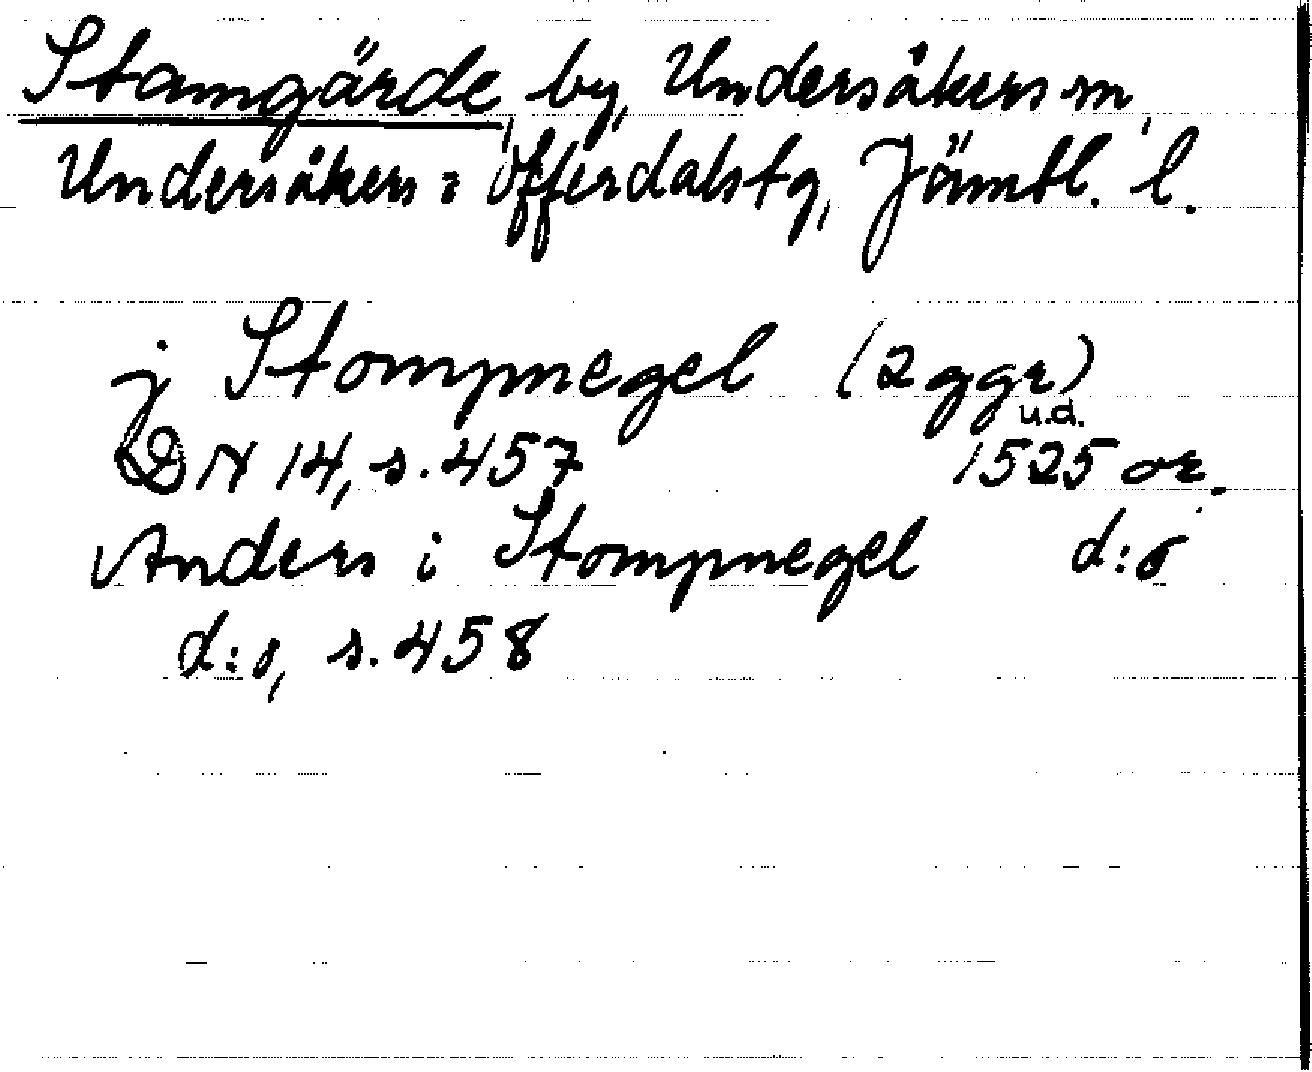 Stamgärde by, Undersåkers sn,
Undersåkers = Offerdals tg, Jämtl. l.
j Stompnegel (2 ggr)
u.d.
DN 14, s. 457 1525 or.
Anders i Stompnegel d:o
d:o, s. 458